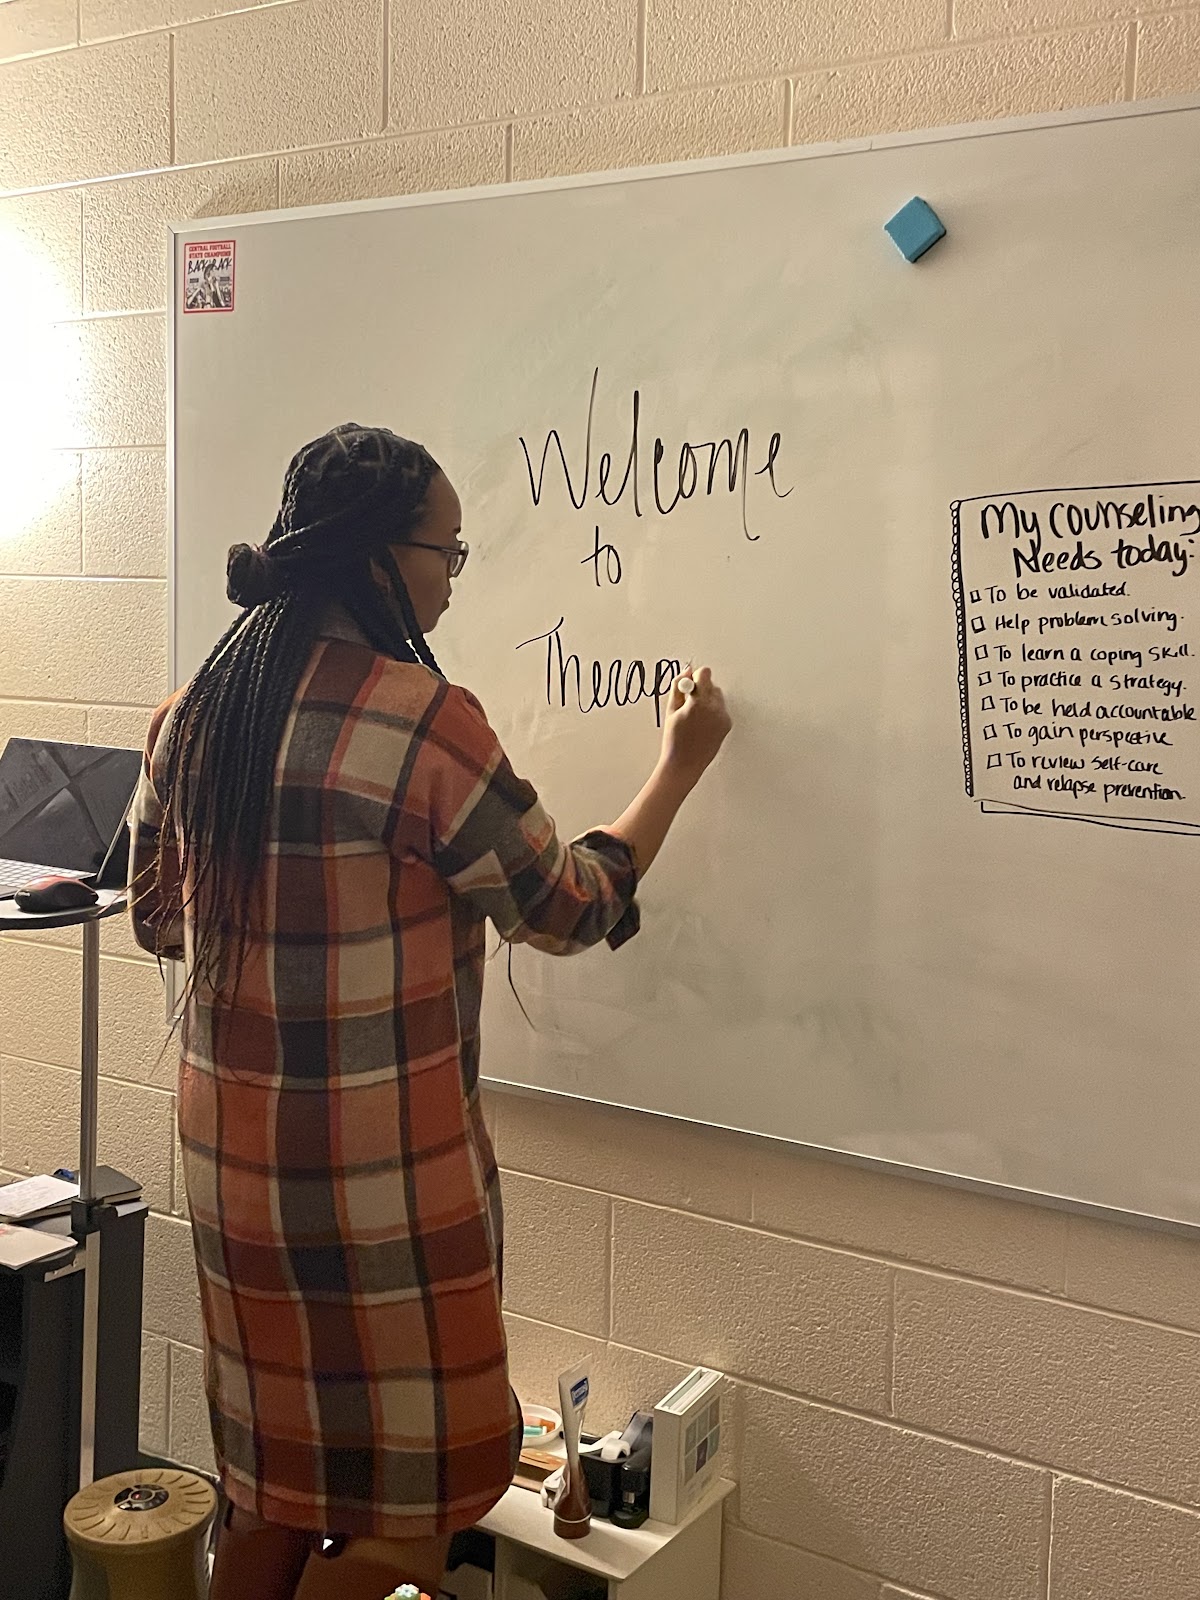 CENTRAL FOOTBALL
STATE CHAMPIONS
Welcome
to
Therapy
My counseling
Needs today:
To be validated.
Help problem solving.
To learn a coping skill.
To practice a strategy.
To be held accountable
To gain perspective
To review self-care
and relapse prevention.